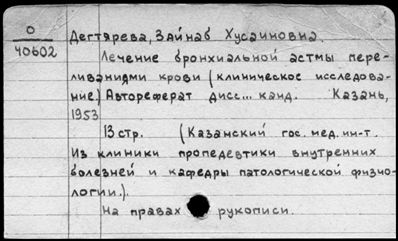 О
40602
Дегтярева, Зайнаб Хусаиновна.
Лечение бронхиальной астмы пере-
ливаниями крови (клиническое исследова-
ние.) Автореферат дисс... канд. Казань,
1953
13 стр. (Казанский гос. мед. ин-т.
Из клиники пропедевтики внутренних
болезней и кафедры патологической физио-
логии.).
На правах рукописи.